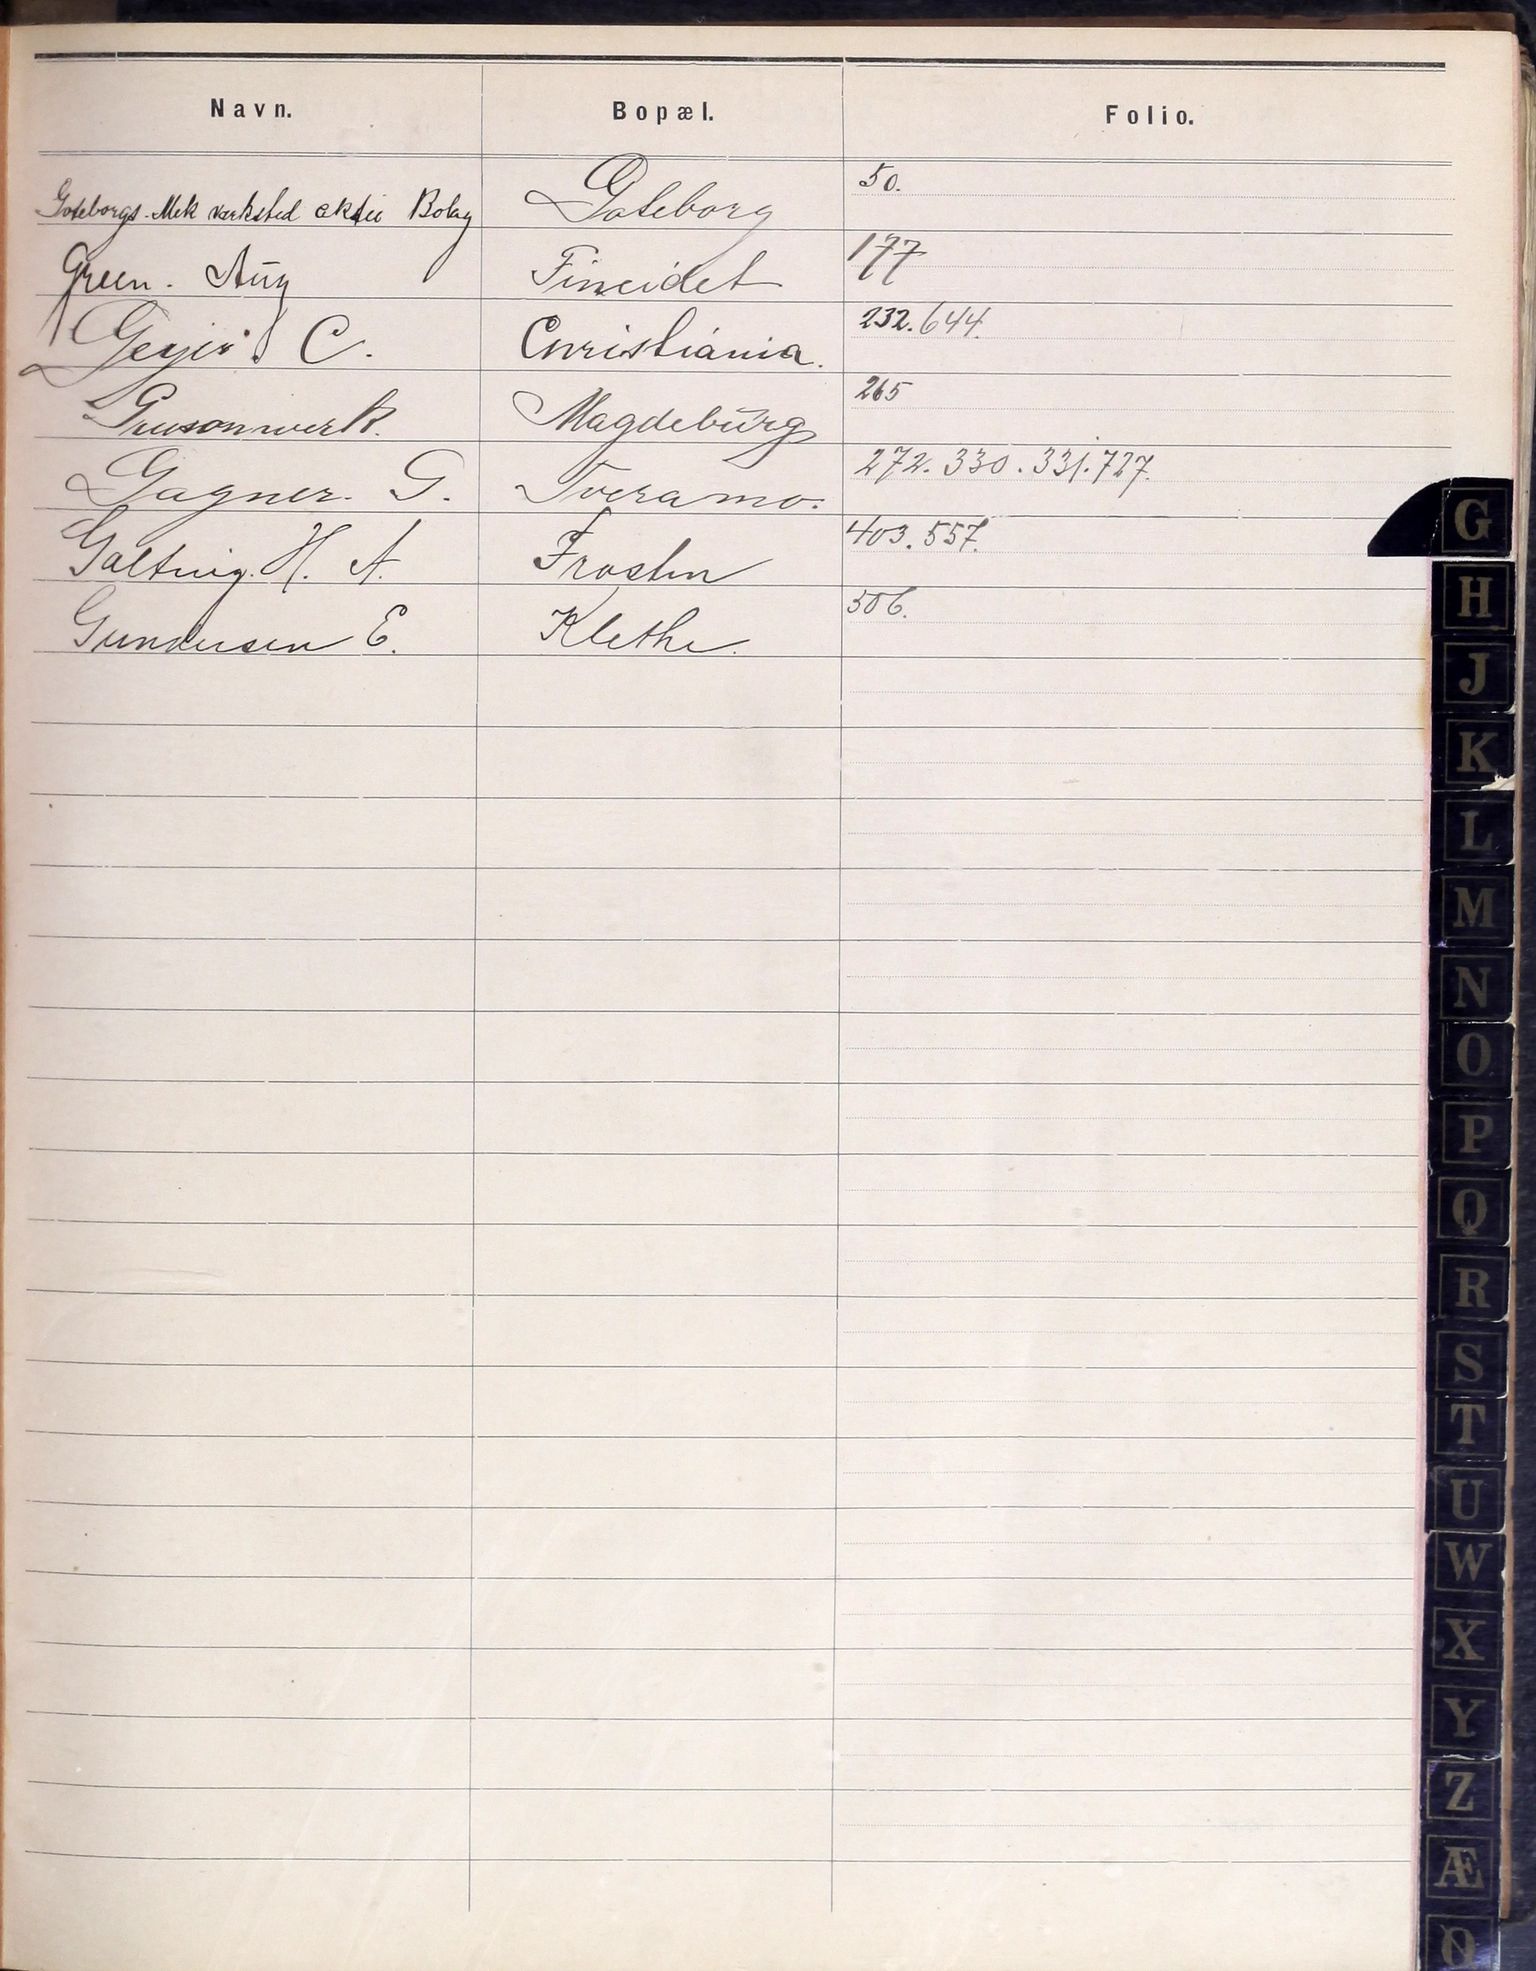 Navn. Bopæl. Folio.
Goteborgs. Mek værksted aktie Bolag Goteborg 50.
Green. Aug Fineidet 177
Geyer C. Christiania. 232. 644.
Grusonwerk. Magdeburg 265
Gagner. G. Tveramo. 272. 330. 331. 727.
Galtung. H. A. Frosten 403. 557.
Gundersen E. Klethe. 506.
G
H
J
K
L
M
N
O
P
Q
R
S
T
U
W
X
Y
Z
Æ
Ø